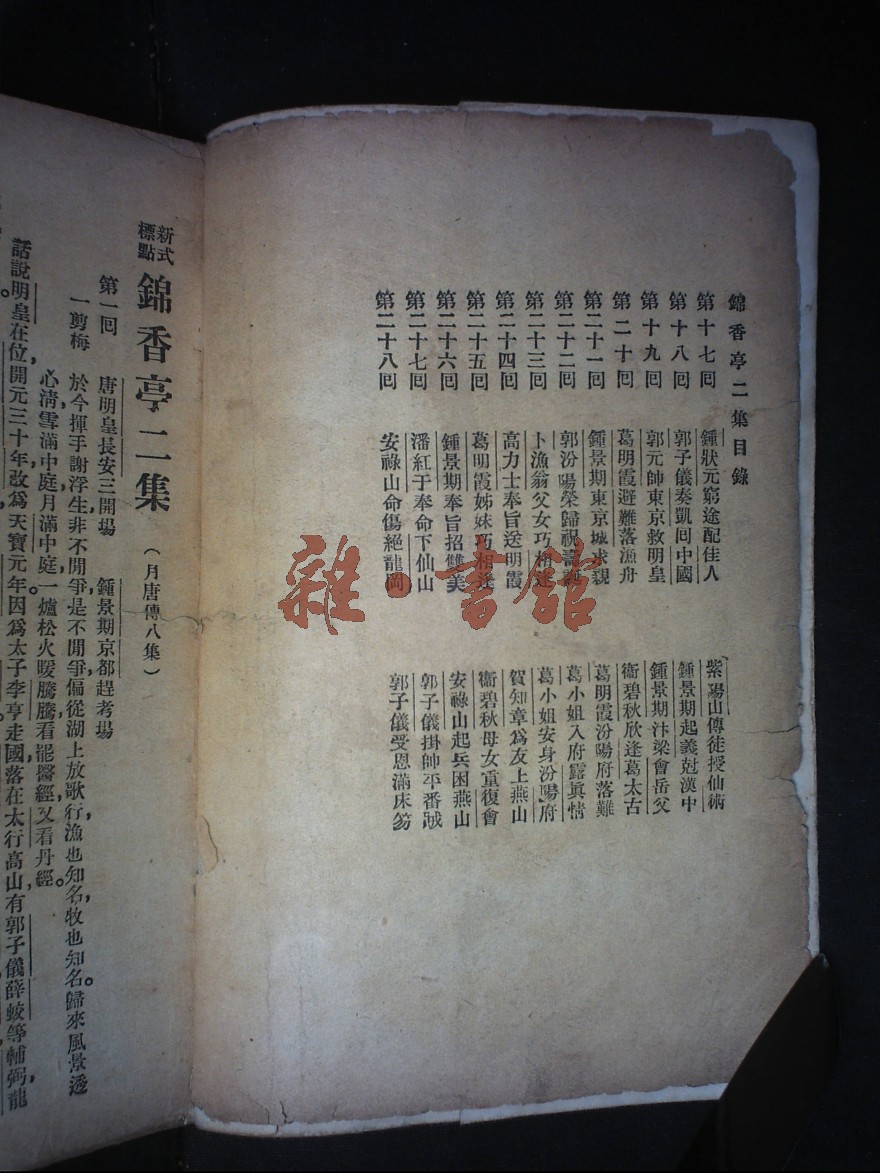 錦香亭二集目錄
第十七回 鍾狀元窮途配佳人 紫陽山傳徒授仙術
第十八回 郭子儀奏凱回中國 鍾景期起義尅漢中
第十九回 郭元帥東京救明皇 鍾景期汴梁會岳父
第二十回 葛明霞避難落漁舟 衞碧秋欣逢葛太古
第二十一回 鍾景期東京城求親 葛明霞汾陽府落難
第二十二回 郭汾陽榮歸祝壽誕 葛小姐入府露眞情
第二十三回 卜漁翁父女巧相逢 葛小姐安身汾陽府
第二十四回 高力士奉旨送明霞 賀知章爲友上燕山
第二十五回 葛明霞姊妹巧相逢 衞碧秋母女重復會
第二十六回 鍾景期奉旨招雙美 安祿山起兵困燕山
第二十七回 潘紅于奉命下仙山 郭子儀掛帥平番戝
第二十八回 安祿山命傷絕龍岡 郭子儀受恩滿床笏
新式標點 錦香亭二集 (月唐傳八集)
第一回 唐明皇長安三開場 鍾景期京都趕考場
一剪梅 於今揮手謝浮生,非不閒爭,是不閒爭,偏從湖上放歌行,漁也知名,牧也知名。歸來風景透
心淸,雪滿中庭,月滿中庭。一爐松火暖騰騰,看罷醫經,又看丹經。
話說明皇在位,開元三十年,改爲天寶元年,因爲太子李亨走國,落在太行高山,有郭子儀薛蛟等輔弼龍
雜·書館